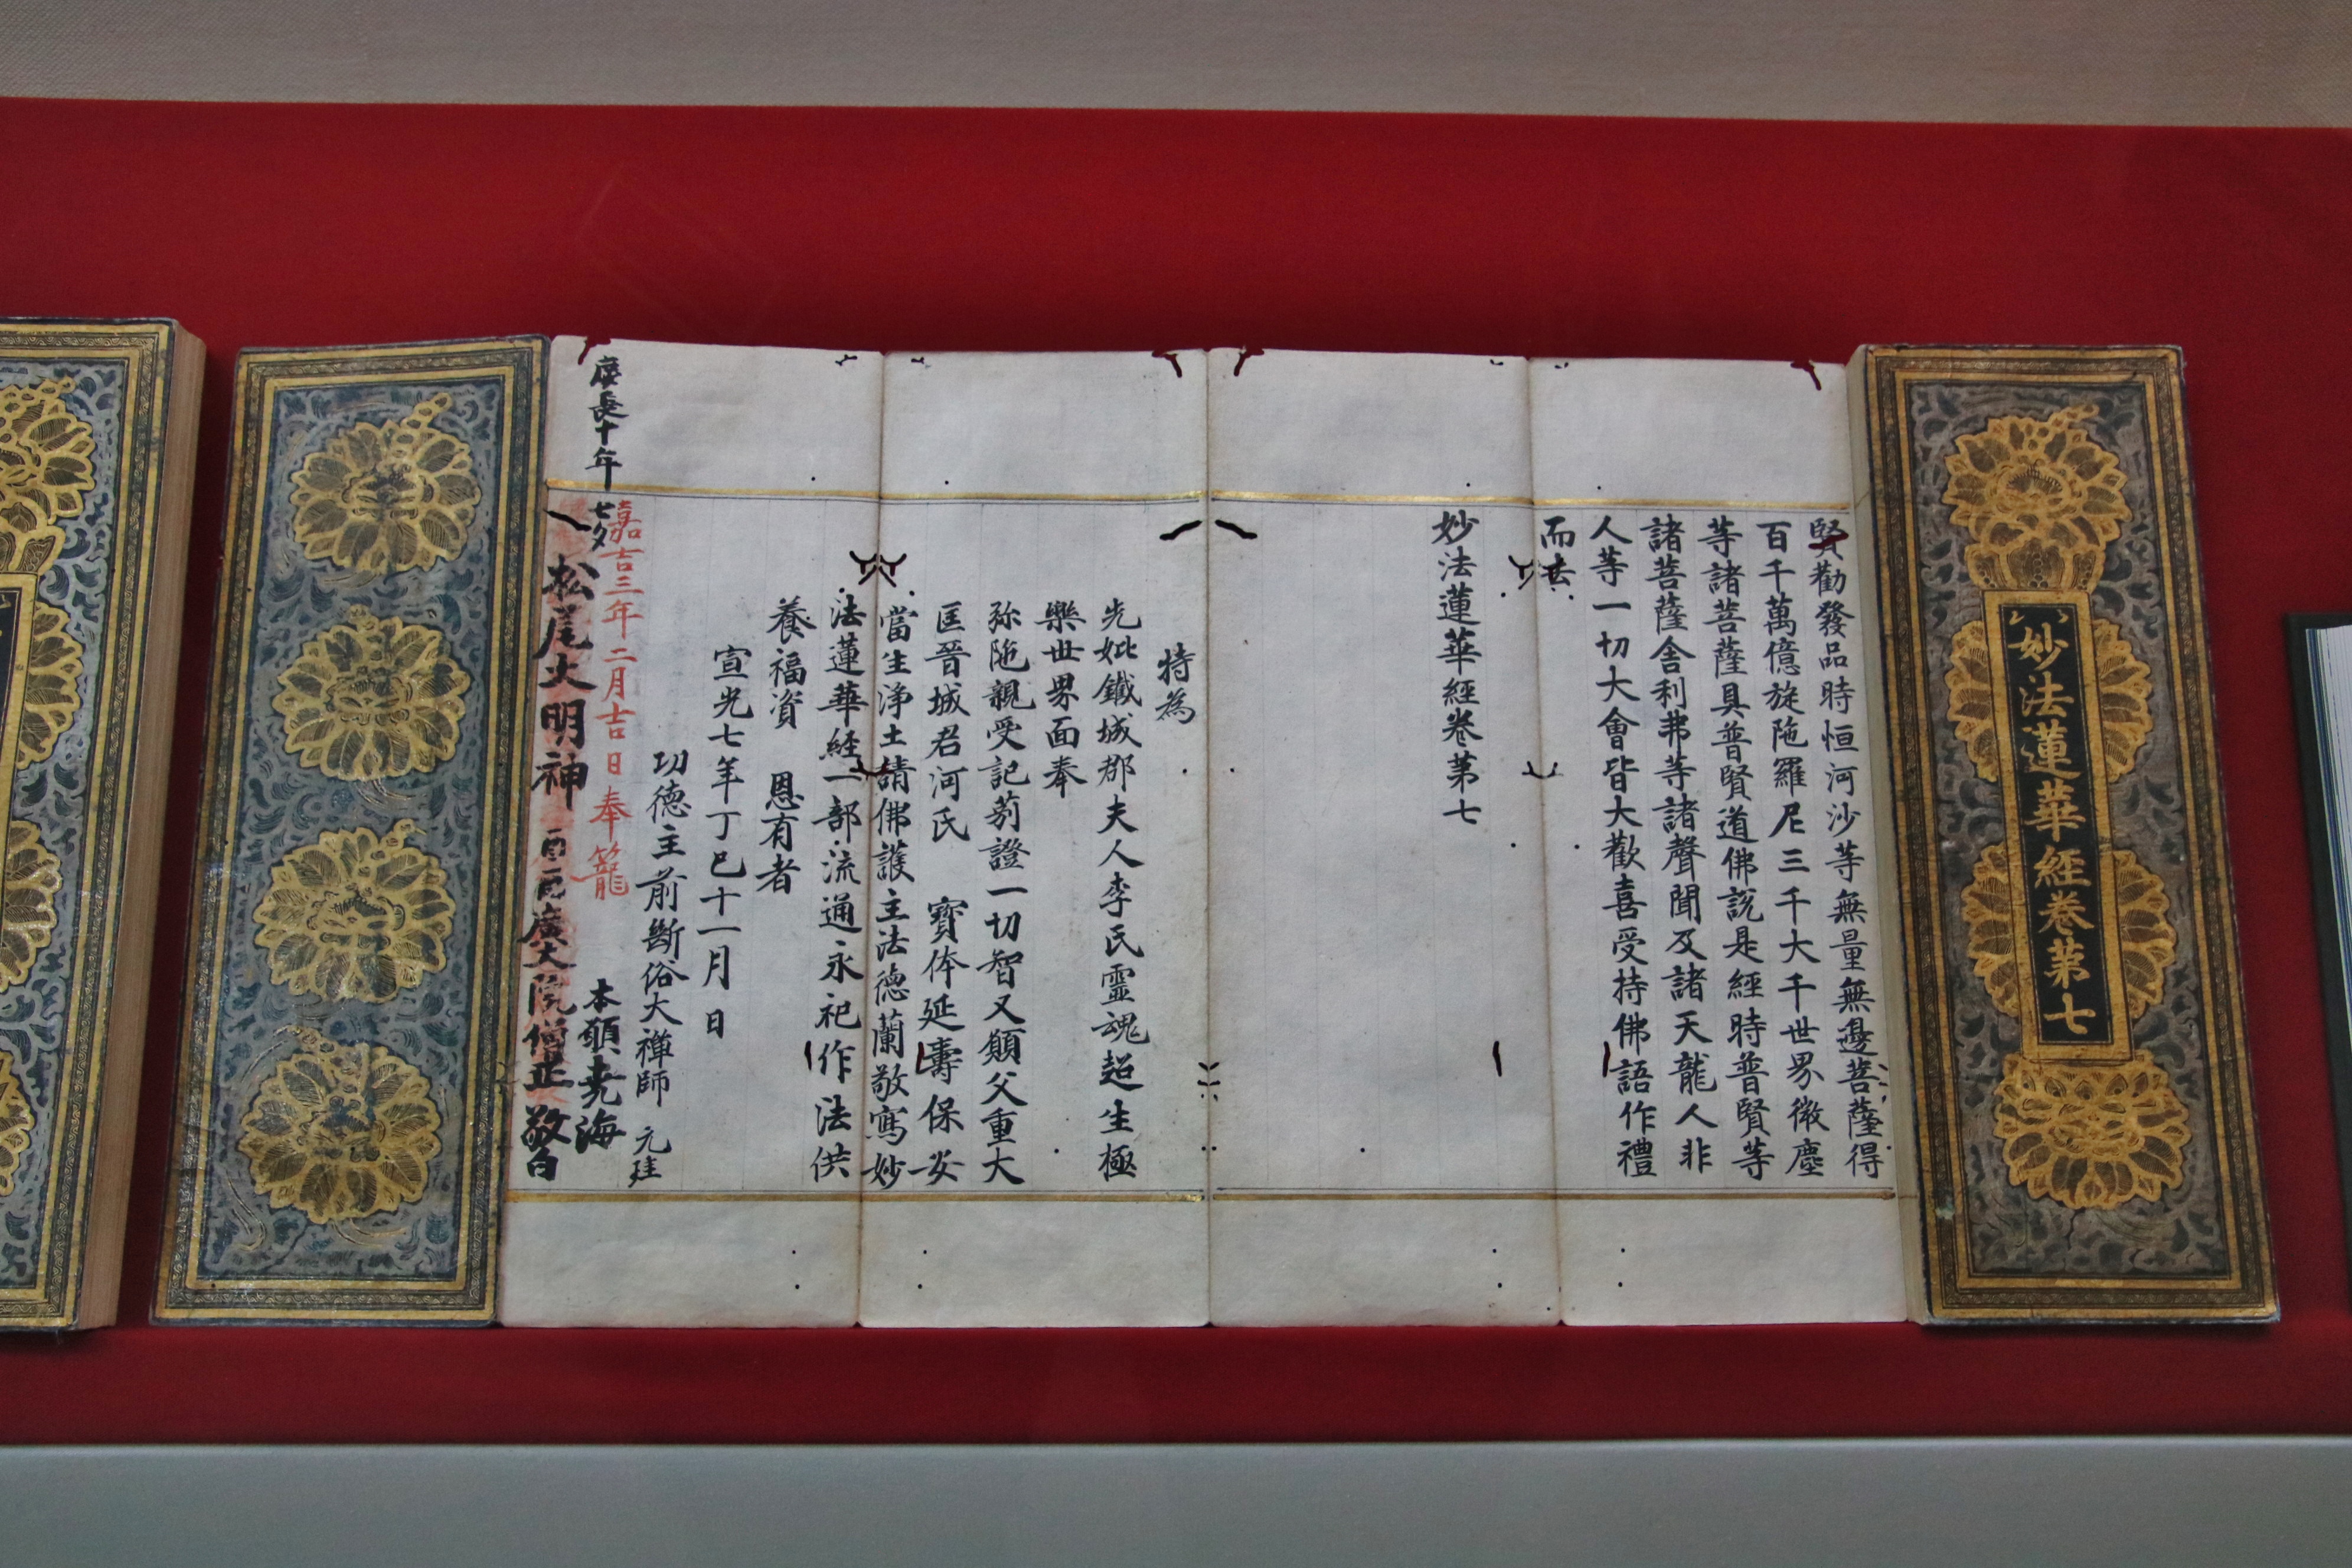 妙法蓮華經卷第七
賢勸發品時恒河沙等無量無邊菩薩得
百千萬億旋陁羅尼三千大千世界微塵
等諸菩薩具普賢道佛說是經時普賢等
諸菩薩舍利弗等諸聲聞及諸天龍人非
人等一切大會皆大歡喜受持佛語作禮
而去
妙法蓮華經卷第七
特為
先妣鐵城郡夫人李氏靈魂超生極
樂世界面奉
弥陁親受記莂證一切智又願父重大
匡晉城君河氏 寶体延壽保安
當生淨土請佛護主法德蘭敬寫妙
法蓮華經一部流通永祀作法供
養福資 恩有者
宣光七年丁巳十一月 日
功德主前斷俗大禪師 元珪
嘉吉三年二月吉日奉籠
本願堯海
慶長十年七夕
松尾大明神 廣大院僧正敬白